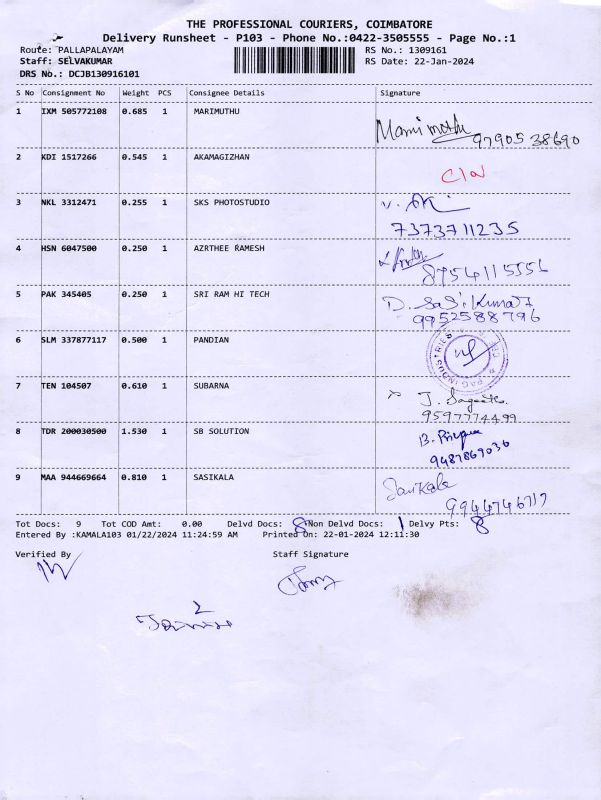 THE PROFESSIONAL COURIERS, COIMBATORE
Delivery Runsheet - P103 - Phone No.:0422-3505555 - Page No.:1
Route: PALLAPALAYAM RS No.: 1309161
Staff: SELVAKUMAR RS Date: 22-Jan-2024
DRS No.: DCJB130916101
S No Consignment No Weight PCS Consignee Details Signature
1 IXM 505772108 0.685 1 MARIMUTHU
Marimuthu 97905 38690
2 KDI 1517266 0.545 1 AKAMAGIZHAN
3 NKL 3312471 0.255 1 SKS PHOTOSTUDIO
7373711235
4 HSN 6047500 0.250 1 AZRTHEE RAMESH
8754115556
5 PAK 345405 0.250 1 SRI RAM HI TECH D. Sasikumar
9952588796
6 SLM 337877117 0.500 1 PANDIAN
7 TEN 104507 0.610 1 SUBARNA
9597774499
8 TDR 200030500 1.530 1 SB SOLUTION B. Priya
9487869036
9 MAA 944669664 0.810 1 SASIKALA
Sasikala
9944746717
Tot Docs: 9 Tot COD Amt: 0.00 Delvd Docs: 8 Non Delvd Docs: 1 Delvy Pts: 8
Entered By :KAMALA103 01/22/2024 11:24:59 AM Printed On: 22-01-2024 12:11:30
Verified By Staff Signature
2